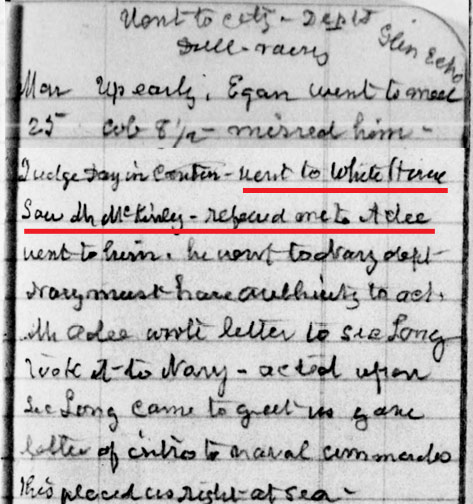 Went to city - Depts
Glen Echo
Dull - rainy
Mar Up early, Egan went to meet
25 cob 8½ - missed him -
Judge Day in Canton - went to White House
Saw Mr McKinley - refered me to Adee
went to him. he went to Navy dept
Navy must have authority to act.
Mr Adee wrote letter to Sec Long
took it to Navy - acted upon
Sec Long came to greet us gave
letter of intro to naval commander
this placed us right at sea -